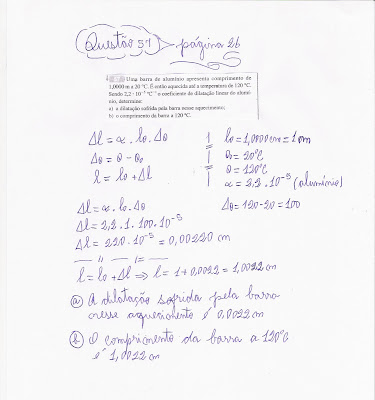 Questão 51 página 26
Uma barra de alumínio apresenta comprimento de
1,0000 m a 20 °C. É então aquecida até a temperatura de 120 °C.
Sendo 2,2 · 10⁻⁵ °C⁻¹ o coeficiente de dilatação linear do alumí-
nio, determine:
a) a dilatação sofrida pela barra nesse aquecimento;
b) o comprimento da barra a 120 °C.
Δl = α . lo . Δθ
Δθ = θ - θo
l = lo + Δl
lo = 1,0000cm = 1cm
θo = 20°C
θ = 120°C
α = 2,2 . 10⁻⁵ (alumínio)
Δl = α . lo . Δθ
Δθ = 120-20 = 100
Δl = 2,2 . 1 . 100 . 10⁻⁵
Δl = 220 . 10⁻⁵ = 0,00220 cm
l = lo + Δl ⇒ l = 1 + 0,0022 = 1,0022 cm
a) A dilatação sofrida pela barra
nesse aquecimento é 0,0022 cm
b) O comprimento da barra a 120°C
é 1,0022 cm